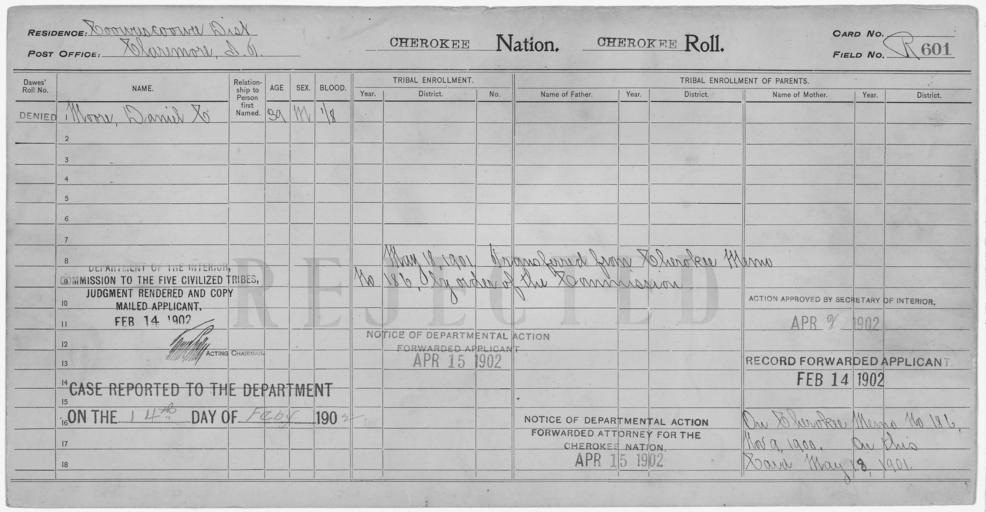 RESIDENCE: Coowescoowee Dist
POST OFFICE: Claremore, I.T.
CHEROKEE Nation. CHEROKEE Roll.
CARD NO.
FIELD NO. R 601
Dawes' Roll No.
NAME.
Relationship to Person first Named.
AGE
SEX.
BLOOD.
TRIBAL ENROLLMENT.
Year. District. No.
TRIBAL ENROLLMENT OF PARENTS.
Name of Father. Year. District. Name of Mother. Year. District.
DENIED 1 Moore, Daniel C 39 M 1/8
2
3
4
5
6
7
8 May 18, 1901 Transferred from Cherokee Memo
No 186, by order of the Commission
REJECTED
DEPARTMENT OF THE INTERIOR,
9 COMMISSION TO THE FIVE CIVILIZED TRIBES,
JUDGMENT RENDERED AND COPY
10 MAILED APPLICANT.
11 FEB 14 1902
12
ACTING CHAIRMAN
13
NOTICE OF DEPARTMENTAL ACTION
FORWARDED APPLICANT
APR 15 1902
ACTION APPROVED BY SECRETARY OF INTERIOR.
APR 1902
RECORD FORWARDED APPLICANT
FEB 14 1902
14 CASE REPORTED TO THE DEPARTMENT
15
16 ON THE 14th DAY OF Feby 1902
17
18
NOTICE OF DEPARTMENTAL ACTION
FORWARDED ATTORNEY FOR THE
CHEROKEE NATION.
APR 15 1902
On Cherokee Memo No 186,
Nov 9, 1900. On this
Card May 18, 1901.